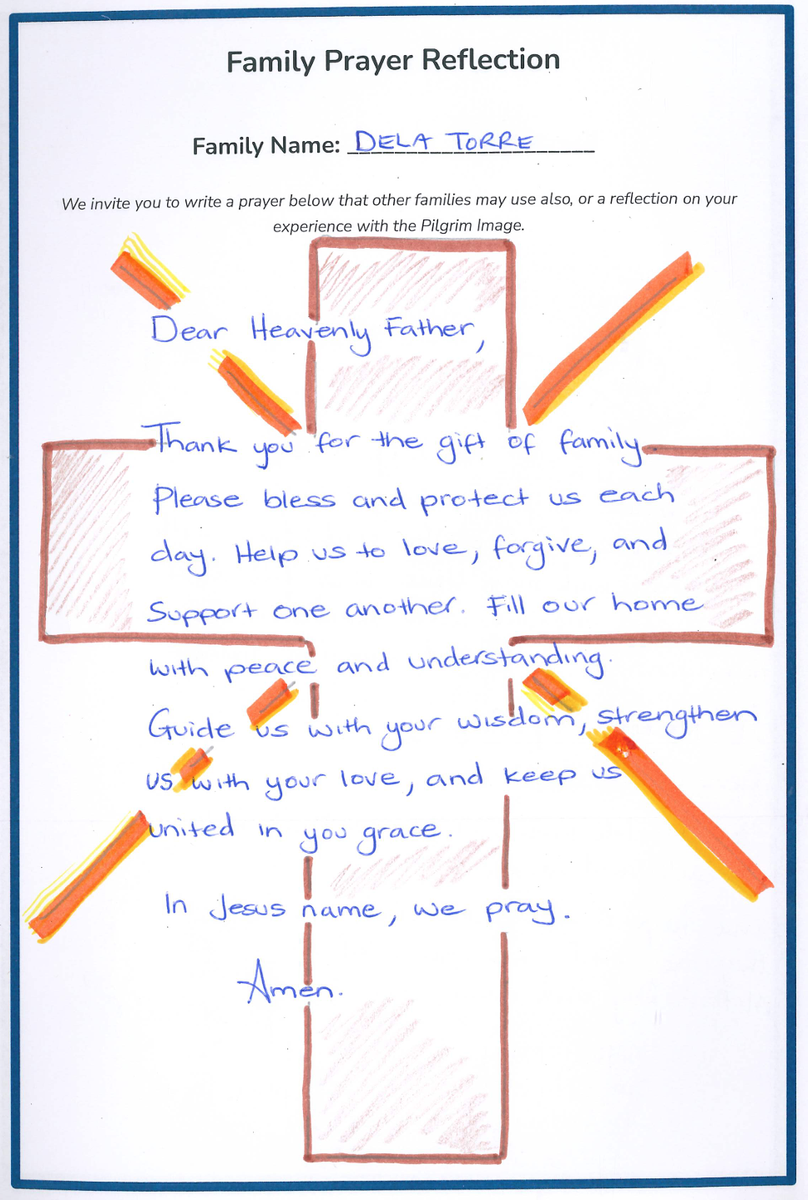 Family Prayer Reflection
Family Name: DELA TORRE
We invite you to write a prayer below that other families may use also, or a reflection on your
experience with the Pilgrim Image.
Dear Heavenly Father,
Thank you for the gift of family
Please bless and protect us each
day. Help us to love, forgive, and
Support one another. Fill our home
with peace and understanding.
Guide us with your wisdom, strengthen
us with your love, and keep us
united in you grace.
In Jesus name, we pray.
Amen.